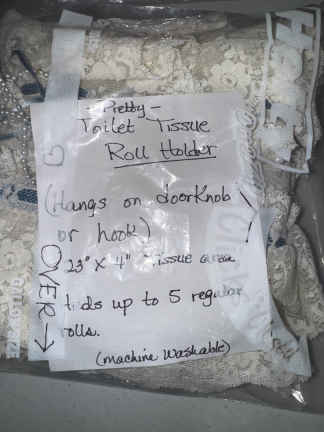 - Pretty -
Toilet Tissue
Roll Holder
(Hangs on doorknob
or hook)
23" x 4" tissue area
up to 5 regular
rolls.
(machine washable)
OVER →